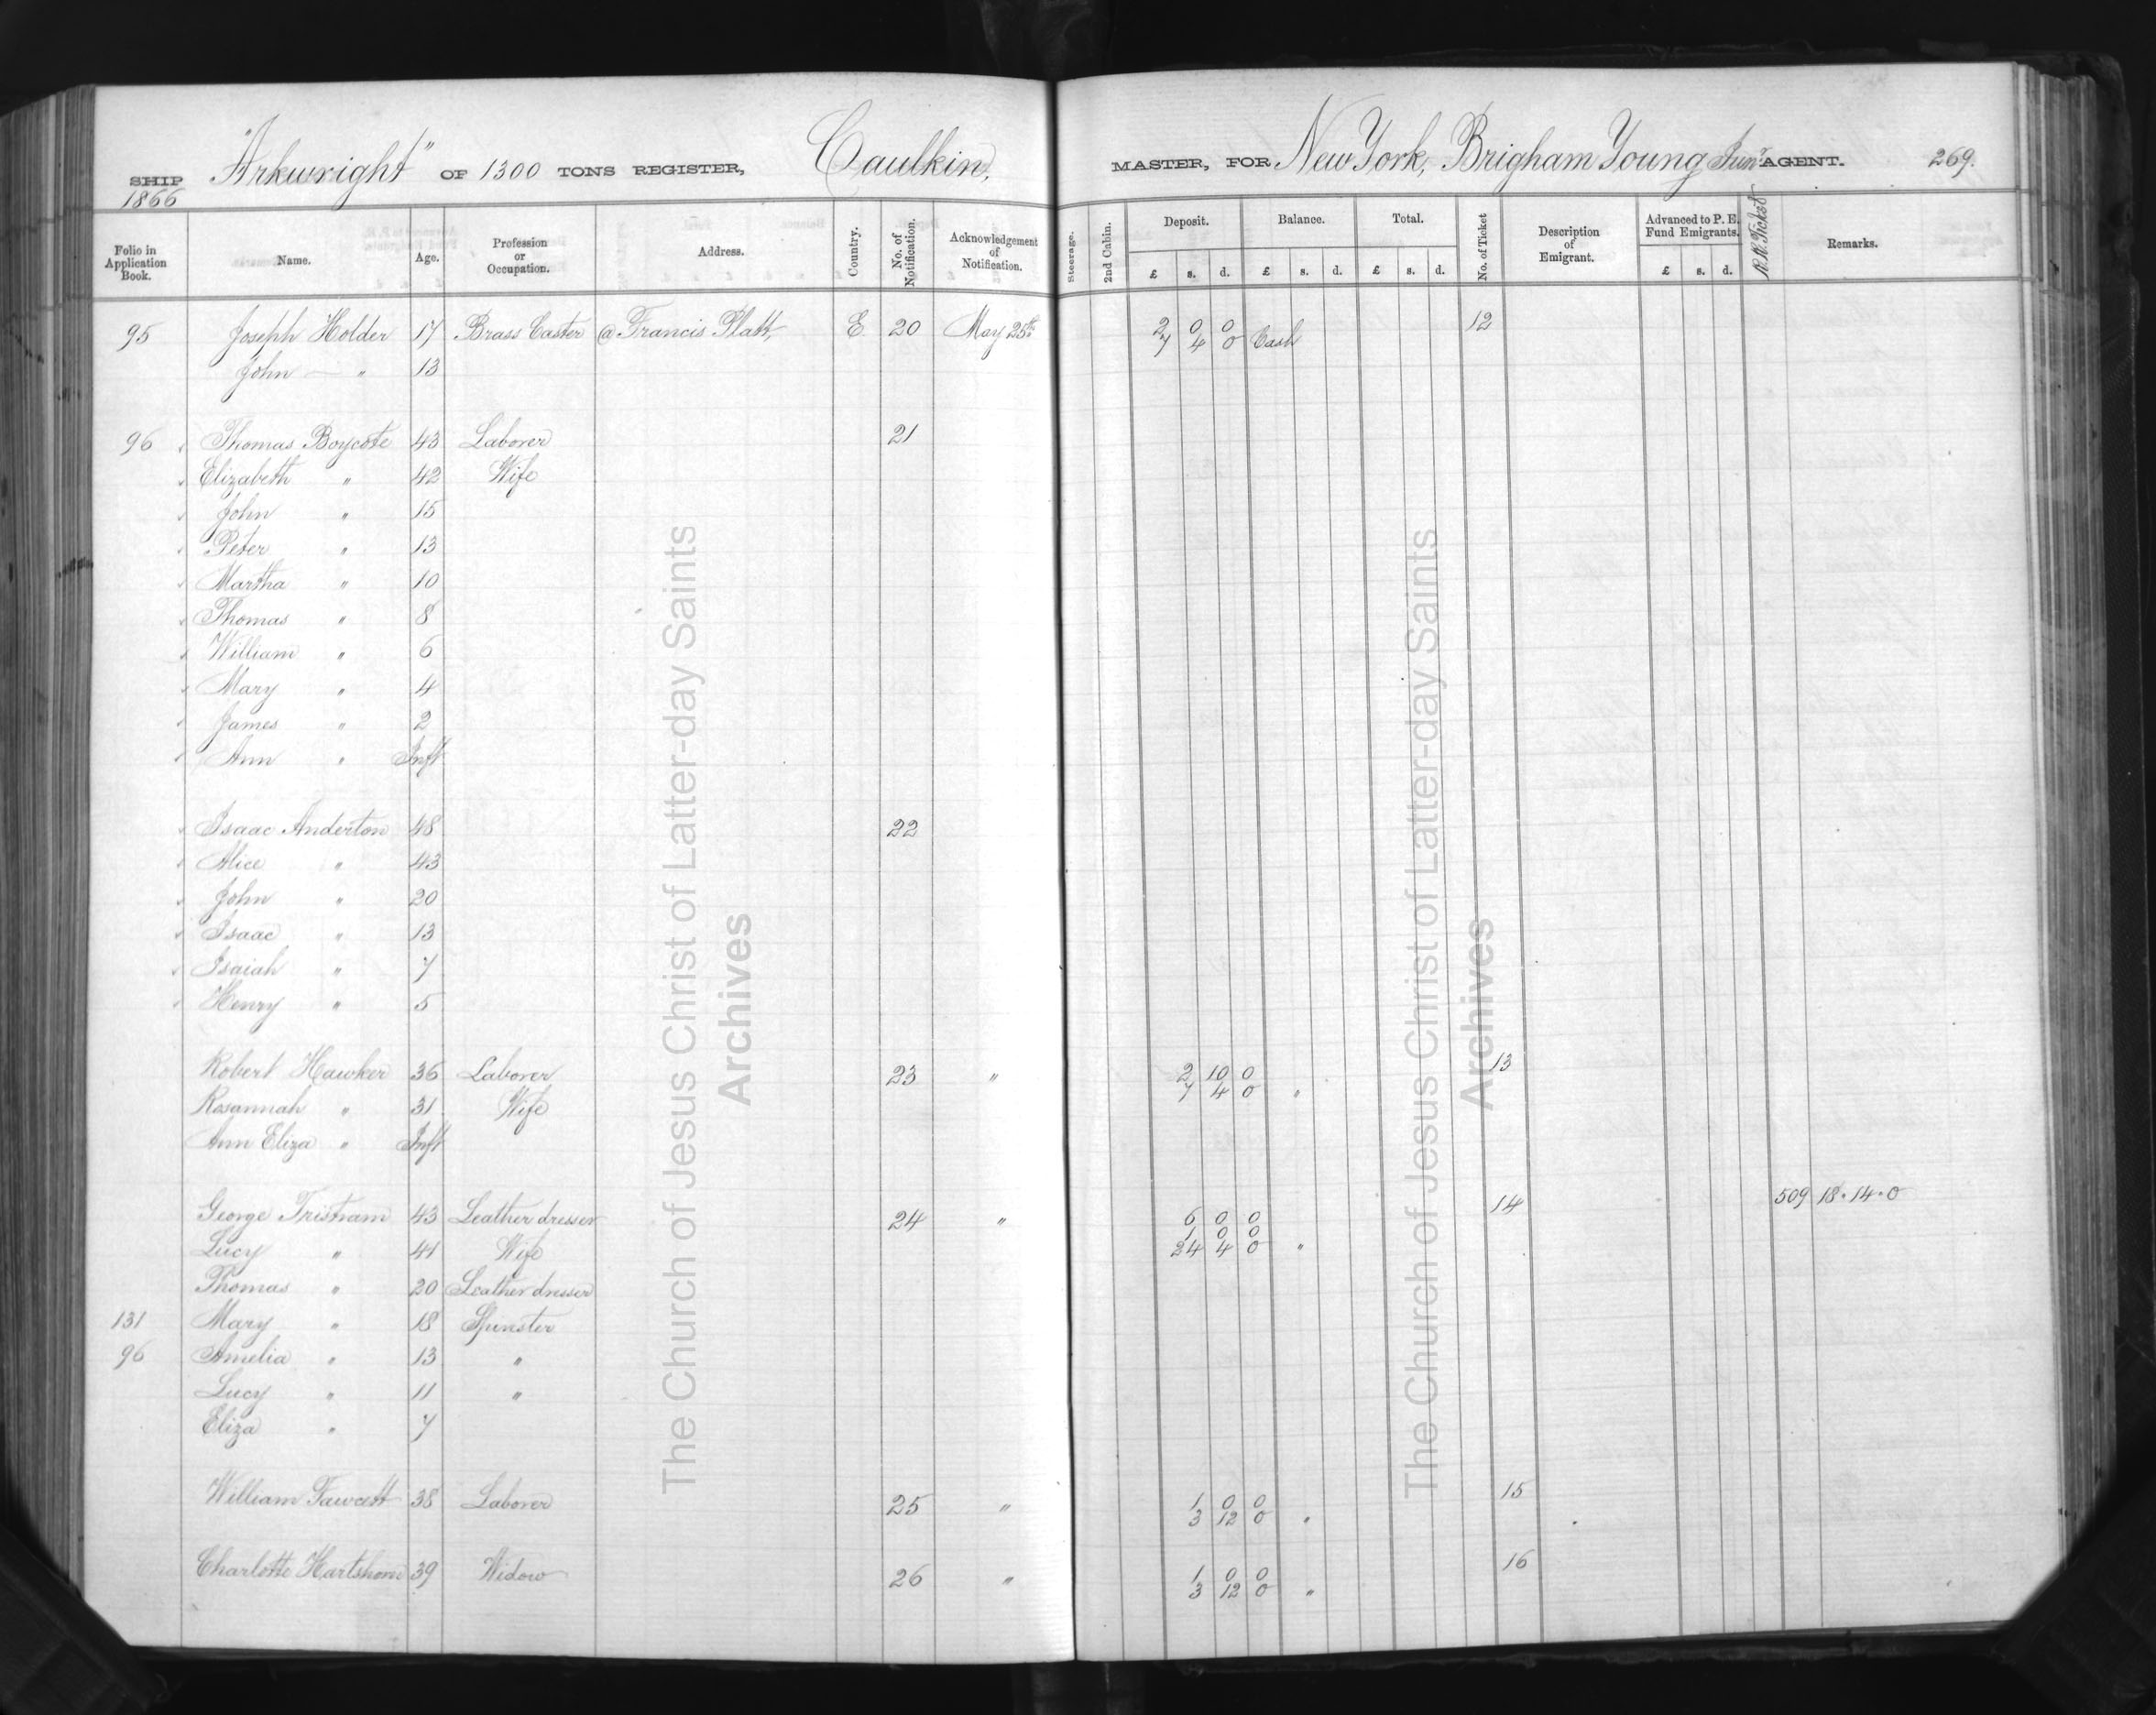 SHIP "Arkwright" OF 1300 TONS REGISTER, Caulkin, MASTER, FOR New York, Brigham Young Junr AGENT. 269.
1866
Folio in Application Book. Name. Age. Profession or Occupation. Address. Country. No. of Notification. Acknowledgement of Notification. Steerage. 2nd Cabin. Deposit. Balance. Total. No. of Ticket Description of Emigrant. Advanced to P. E. Fund Emigrants. R.R. Ticket Remarks.
£ s. d. £ s. d. £ s. d. £ s. d.
95 Joseph Holder 17 Brass Caster @ Francis Platt, E. 20 May 25th 2 0 0 12
7 4 0 Cash
John — " 13
96 Thomas Boycote 43 Laborer 21
Elizabeth " 42 Wife
John " 15
Peter " 13
Martha " 10
Thomas " 8
William " 6
Mary " 4
James " 2
Ann " Inft
Isaac Anderton 48 22
Alice " 43
John " 20
Isaac " 13
Isaiah " 7
Henry " 5
Robert Hawker 36 Laborer 23 " 2 10 0 13
7 4 0 "
Rosannah " 31 Wife
Ann Eliza " Inft
George Tristram 43 Leather dresser 24 " 6 0 0 14 509 18.14.0
1 0 0
Lucy " 41 Wife 24 4 0 "
Thomas " 20 Leather dresser
131 Mary " 18 Spinster
96 Amelia " 13 "
Lucy " 11 "
Eliza " 7
William Fawcett 38 Laborer 25 " 1 0 0 15
3 12 0 "
Charlotte Hartshorn 39 Widow 26 " 1 0 0 16
3 12 0 "
The Church of Jesus Christ of Latter-day Saints
Archives
The Church of Jesus Christ of Latter-day Saints
Archives